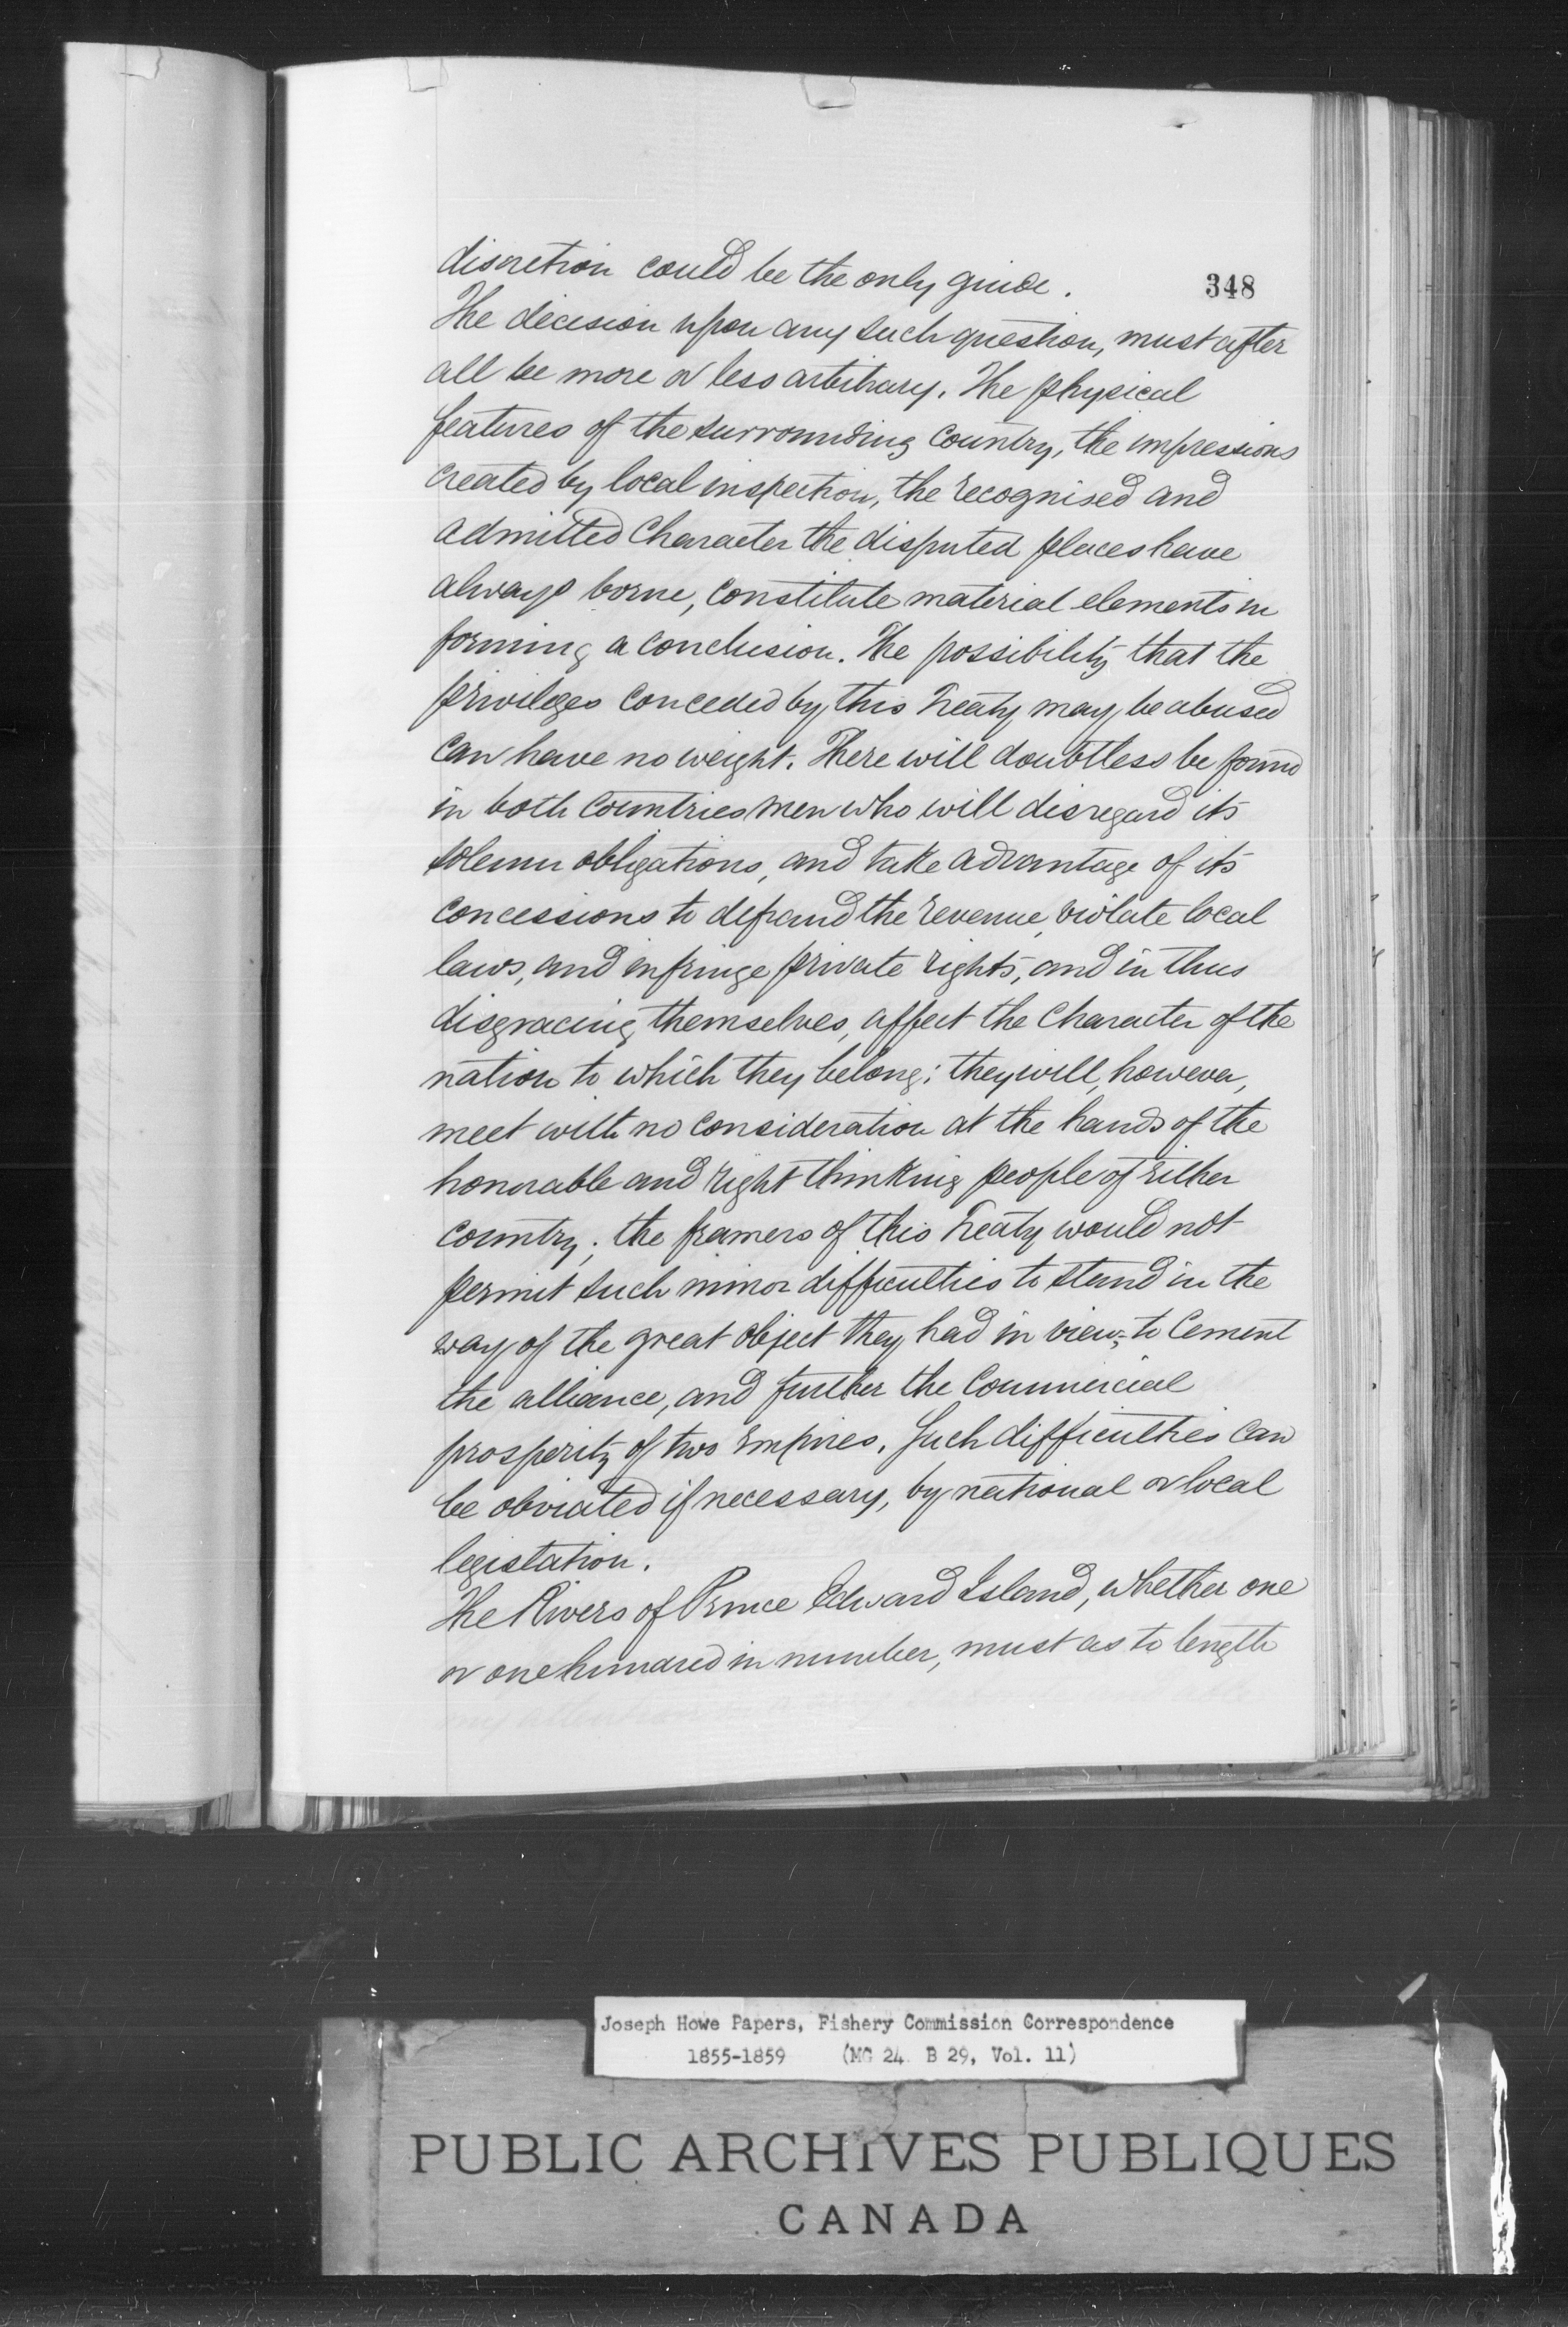 348
discretion could be the only guide.
The decision upon any such question, must after
all be more or less arbitrary. The physical
features of the surrounding country, the impressions
created by local inspection, the recognised and
admitted character the disputed places have
always borne, constitute material elements in
forming a conclusion. The possibility that the
privileges conceded by this Treaty may be abused
can have no weight. There will doubtless be found
in both countries men who will disregard its
solemn obligations, and take advantage of its
concessions to defraud the revenue, violate local
laws, and infringe private rights, and in thus
disgracing themselves, affect the character of the
nation to which they belong; they will, however,
meet with no consideration at the hands of the
honorable and right thinking people of either
country; the framers of this Treaty would not
permit such minor difficulties to stand in the
way of the great object they had in view, - to cement
the alliance, and further the commercial
prosperity of two Empires. Such difficulties can
be obviated if necessary, by national or local
legislation.
The Rivers of Prince Edward Island, whether one
or one hundred in number, must as to length
Joseph Howe Papers, Fishery Commission Correspondence
1855-1859 (MG 24 B 29, Vol. 11)
PUBLIC ARCHIVES PUBLIQUES
CANADA